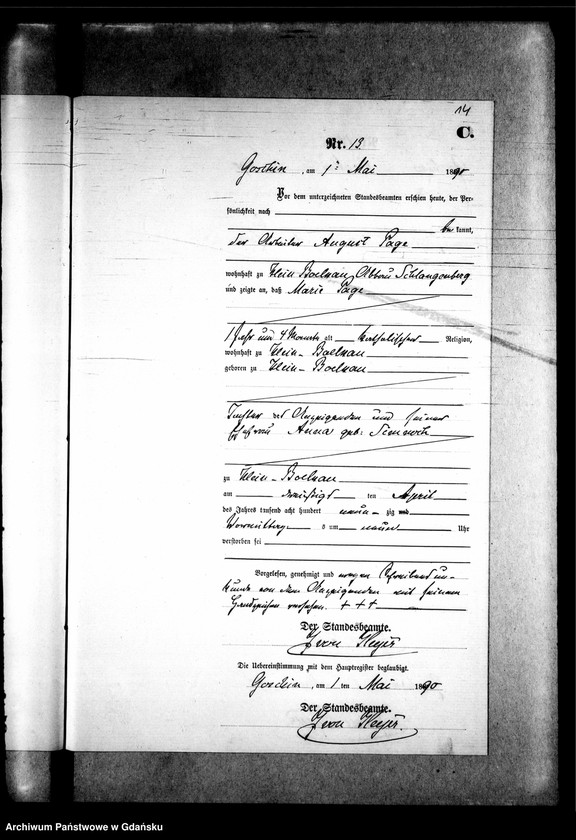 14
C.
Nr. 13.
Goschin, am 1ten Mai 1890
Vor dem unterzeichneten Standesbeamten erschien heute, der Per-
sönlichkeit nach
be kannt,
der Arbeiter August Page
wohnhaft zu Klein Boelkau, Abbau Schlangenberg
und zeigte an, daß Marie Page
1 Jahr und 4 Monate alt katholischer Religion,
wohnhaft zu Klein-Boelkau
geboren zu Klein-Boelkau
Tochter des Anzeigenden und seiner
Ehefrau Anna geb:
zu Klein-Boelkau
am dreißigsten April
des Jahres tausend acht hundert neun zig
Vormittags um neun Uhr
verstorben sei
Vorgelesen, genehmigt und wegen Schreibensun-
kunde von dem Anzeigenden mit seinem
Handzeichen versehen. +++
Der Standesbeamte.
Die Uebereinstimmung mit dem Hauptregister beglaubigt.
Goschin, am 1 ten Mai 1890
Der Standesbeamte.
Archiwum Państwowe w Gdańsku